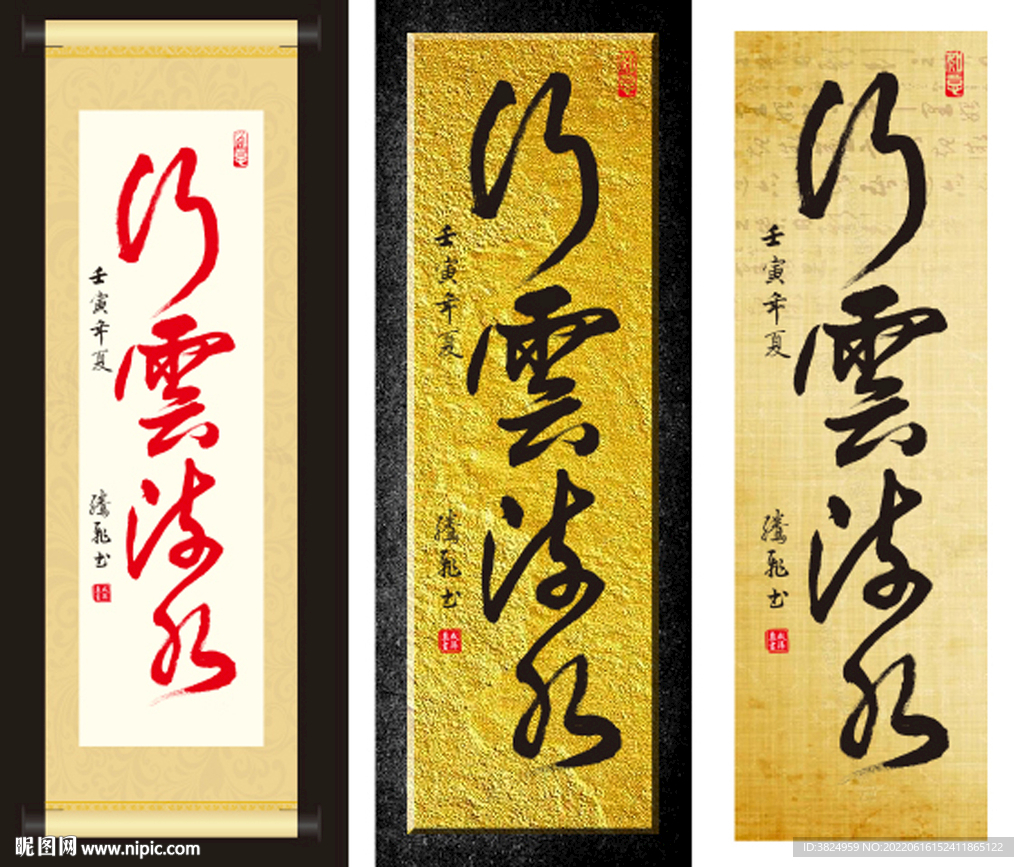 行雲流水
壬寅年夏
騰飛书
行雲流水
壬寅年夏
騰飛书
行雲流水
壬寅年夏
騰飛书
昵图网 www.nipic.com
ID:3824959 NO:20220616152411865122